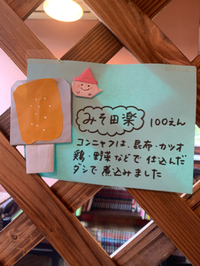 みそ田楽 100えん
コンニャクは、昆布・カツオ
鶏・野菜などで仕込んだ
ダシで煮込みました